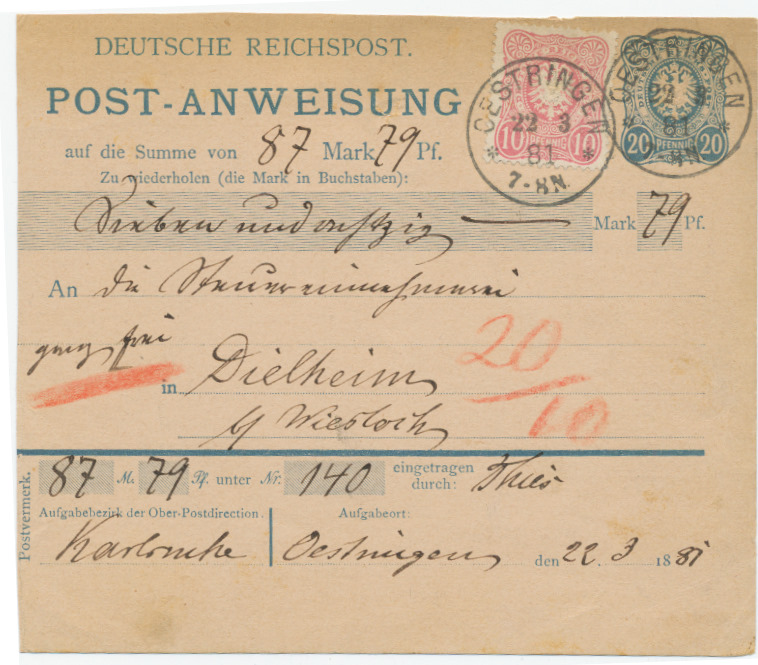 DEUTSCHE REICHSPOST.
POST-ANWEISUNG
auf die Summe von 87 Mark 79 Pf.
Zu wiederholen (die Mark in Buchstaben):
Sieben und achtzig Mark 79 Pf.
An die Steuereinnehmerei
ganz frei
in Dielheim
b/ Wiesloch
20/10
10 PFENNIG 10
20 PFENNIG 20
OESTRINGEN
22 3
81
7-8N.
OESTRINGEN
22 3
81
7-8N.
Postvermerk.
87 M. 79 Pf. unter Nr. 140 eingetragen durch: Thies
Aufgabebezirk der Ober-Postdirection. Aufgabeort:
Karlsruhe Oestringen den 22. 3 1881